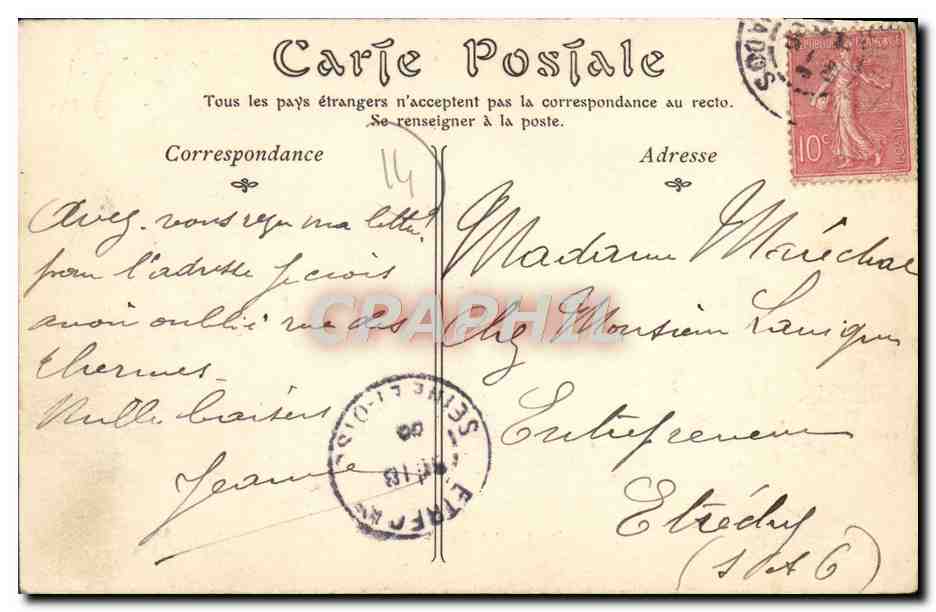 Carte Postale
Tous les pays étrangers n'acceptent pas la correspondance au recto.
Se renseigner à la poste.
Correspondance
Adresse
14
Avez-vous reçu ma lettre?
pour l'adresse je crois
avoir oublié rue des
thermes
Mille baisers
Jeanne
Madame Maréchal
Chez Monsieur
Entrepreneur
Etréchy
(S et O)
10c
ADOS
SEINE-ET-OISE
CPAPHIL